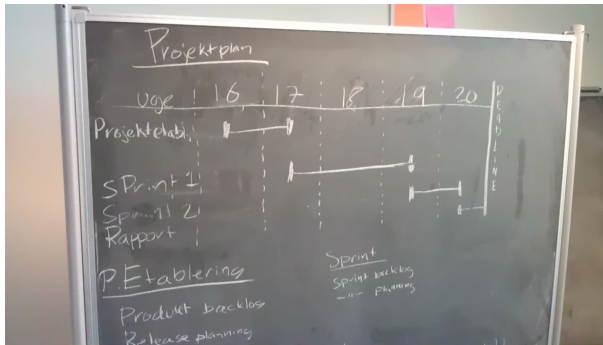 Projektplan
Uge 16 17 18 19 20
DEADLINE
Projektetabl.
SPrint 1
Sprint 2
Rapport
P.Etablering
Produkt backlog
Release planning
Sprint
Sprint backlog
-"- planning